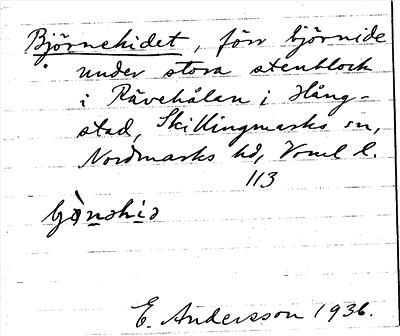 Björnehidet, förr björnide
under stora stenblock
i Rävehålan i Hång-
stad, Skillingmarks sn,
Nordmarks hd, Vrml l.
113
E. Andersson 1936.